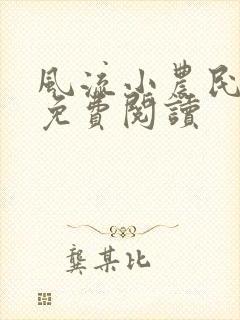 風流小農民
免費閱讀
龔某比